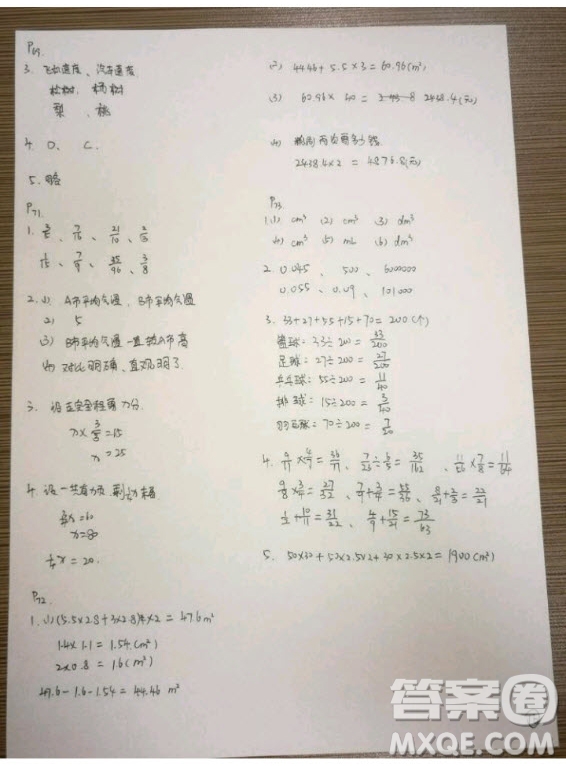 P69.
3. 飞机速度、汽车速度
松树, 杨树
梨、桃
4. D、 C、
5. 略
P71.
1. 、7/10、21/10、
、7/9、35/96、3/8
2. (1) A市平均气温, B市平均气温
(2) 5
(3) B市平均气温一直较A市高
(4) 对比明确、直观明了
3. 设 全程
x × 3/5 = 15
x = 25
4. 设一共有x页,
3/4x = 60
x = 80
1/4x = 20.
P72.
1. (1) (5.5×2.8+3×2.8)×2 = 47.6m²
1.4×1.1 = 1.54(m²)
2×0.8 = 1.6(m²)
47.6-1.6-1.54 = 44.46 m²
(2) 44.46+5.5×3 = 60.96(m²)
(3) 60.96×40 = 2438.4(元)
(4)
2438.4×2 = 4876.8(元)
P73.
1.(1) cm³ (2) cm³ (3) dm³
(4) cm³ (5) mL (6) dm³
2. 0.045、 500、 600000
0.055、0.09、101000
3. 33+27+55+15+70 = 200(个)
篮球: 33÷200 = 33/200
足球: 27÷200 = 27/200
乒乓球: 55÷200 = 11/40
排球: 15÷200 = 3/40
羽毛球: 70÷200 = 7/20
4. 9/11×4/9 = 、 = 35/162、 11/56×7/8 = 11/64
9/8×3/4 = 27/32、 、
1/2+10/11 = 31/22、 4/9+15/21 = 73/63
5. = 1900(cm²)
答案圈
MXQE.COM